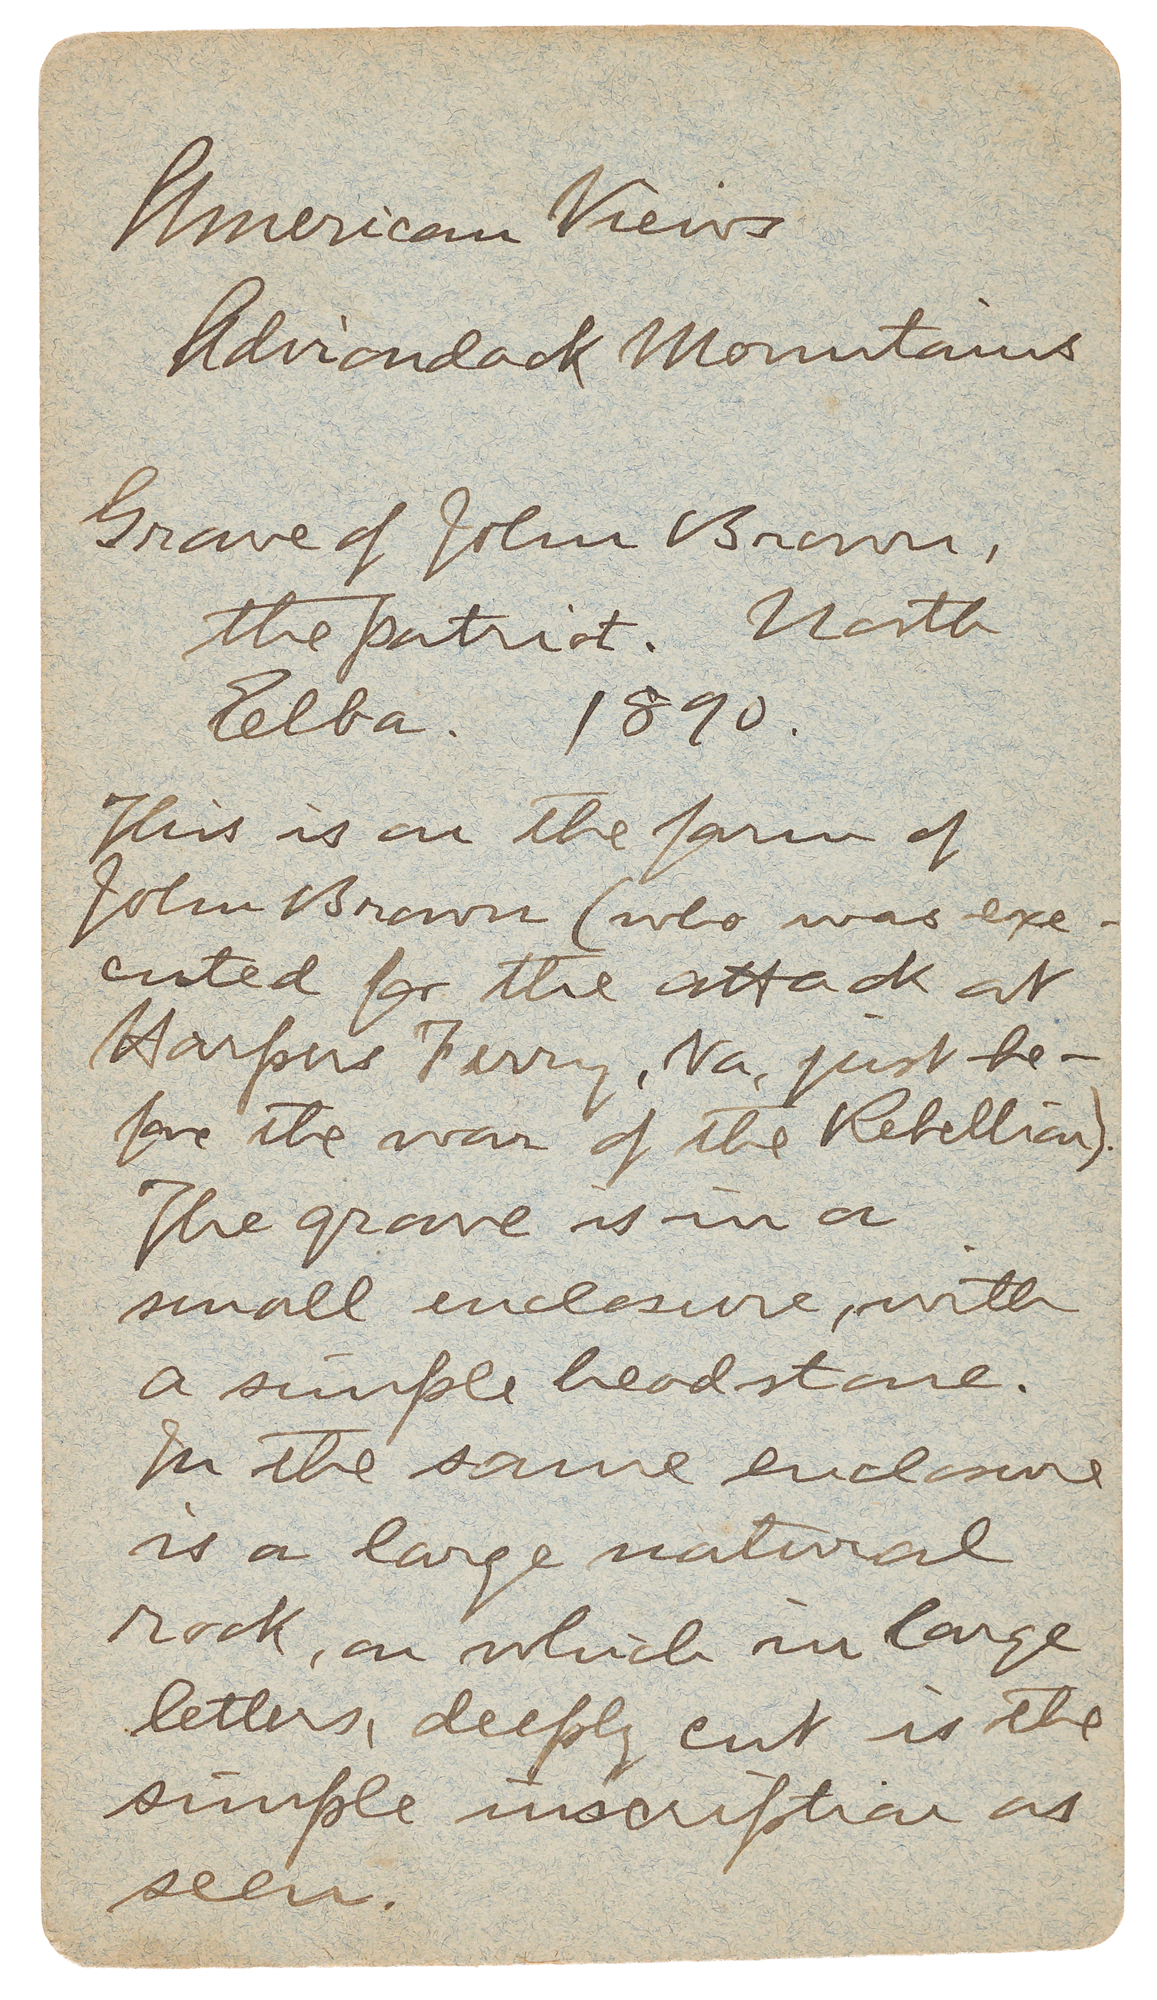 American Views
Adirondack Mountains
Grave of John Brown,
the patriot. North
Elba. 1890.
This is on the farm of
John Brown (who was exe-
cuted for the attack at
Harpers Ferry, Va, just be-
fore the war of the Rebellion).
The grave is in a
small enclosure, with
a simple headstone.
In the same enclosure
is a large natural
rock, on which in large
letters, deeply cut is the
simple inscription as
seen.